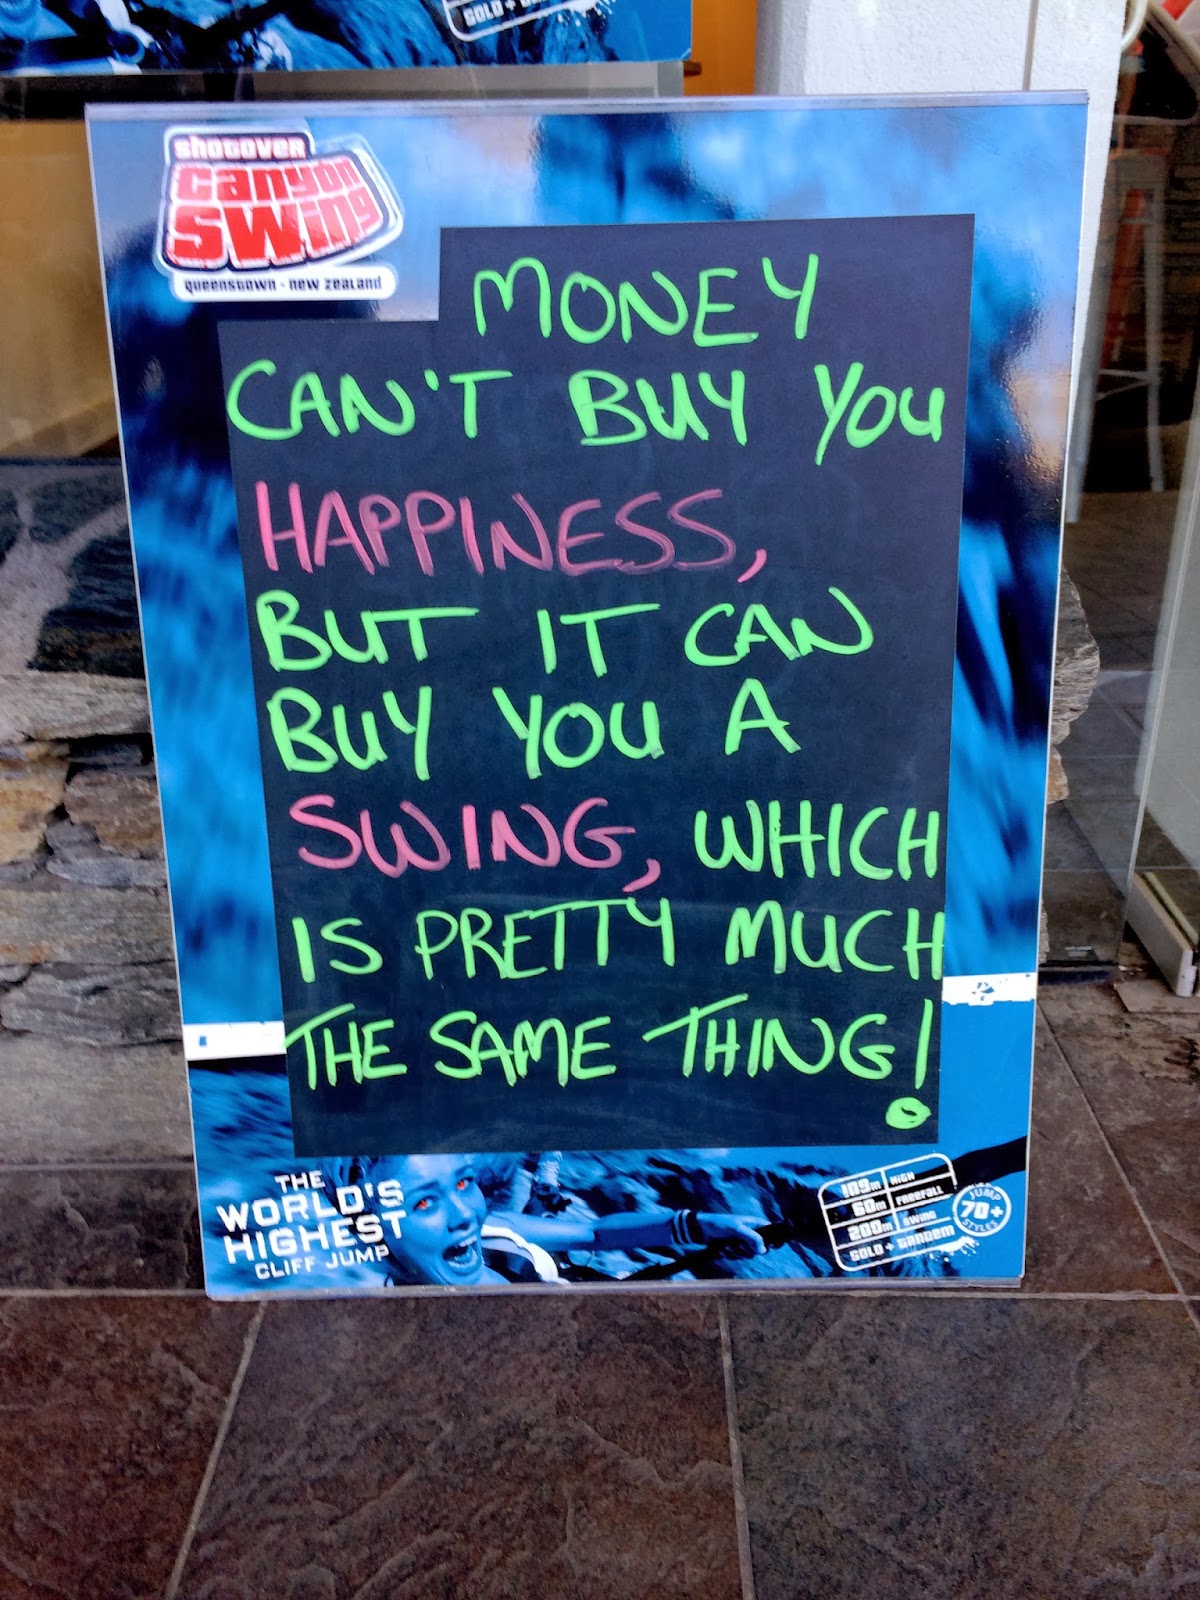 SOLO +
shotover
canyon
swing
queenstown - new zealand
MONEY
CAN'T BUY YOU
HAPPINESS,
BUT IT CAN
BUY YOU A
SWING, WHICH
IS PRETTY MUCH
THE SAME THING!
THE
WORLD'S
HIGHEST
CLIFF JUMP
109m HIGH
60m FREEFALL
200m SWING
SOLO + tandem
JUMP
70+
STYLES